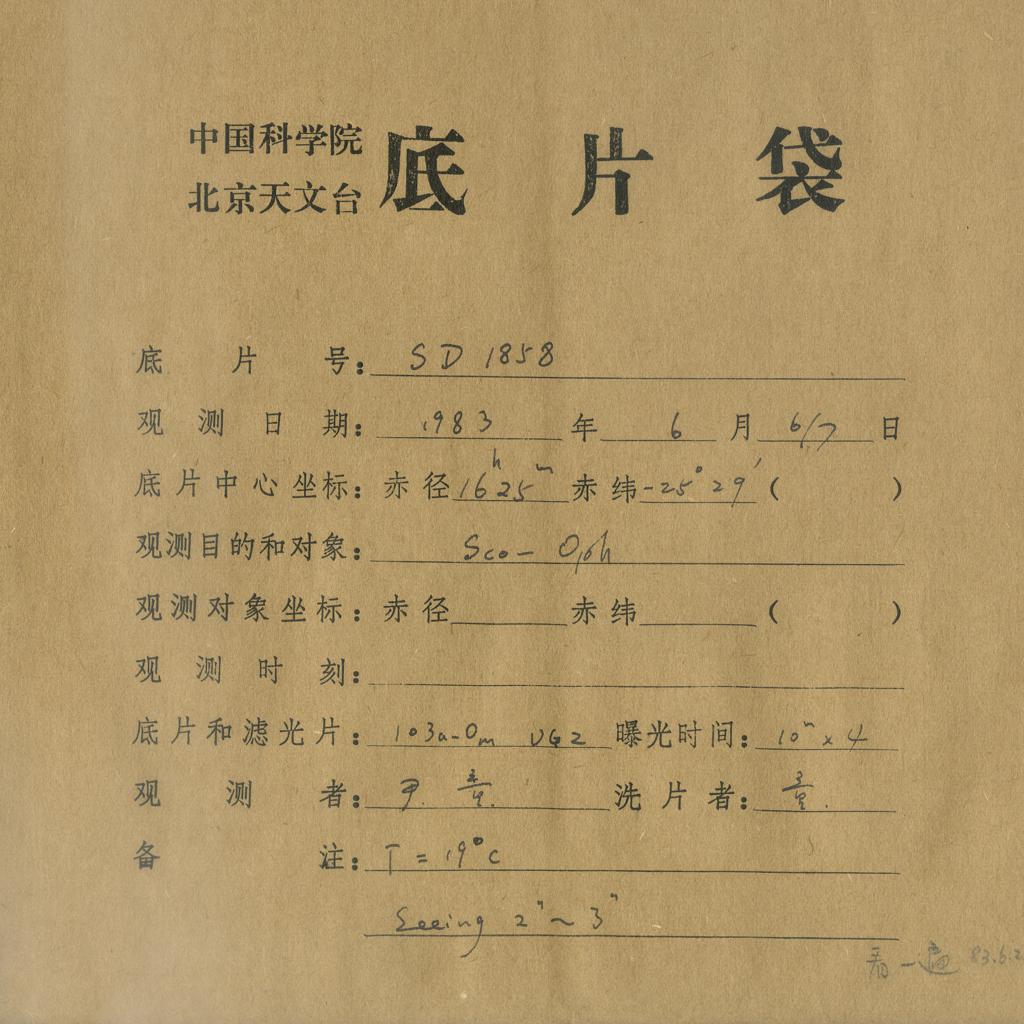 中国科学院
北京天文台
底片袋
底片号: SD 1858
观测日期: 1983年 6月 6/7日
底片中心坐标: 赤径 16h 25m 赤纬 -25° 29′ ( )
观测目的和对象: Sco - Oph
观测对象坐标: 赤径 赤纬 ( )
观测时刻:
底片和滤光片: 103a-Om UG2 曝光时间: 10m x 4
观测者: 洗片者:
备注: T = 19°C
Seeing 2" ~ 3"
看一遍 83.6.2